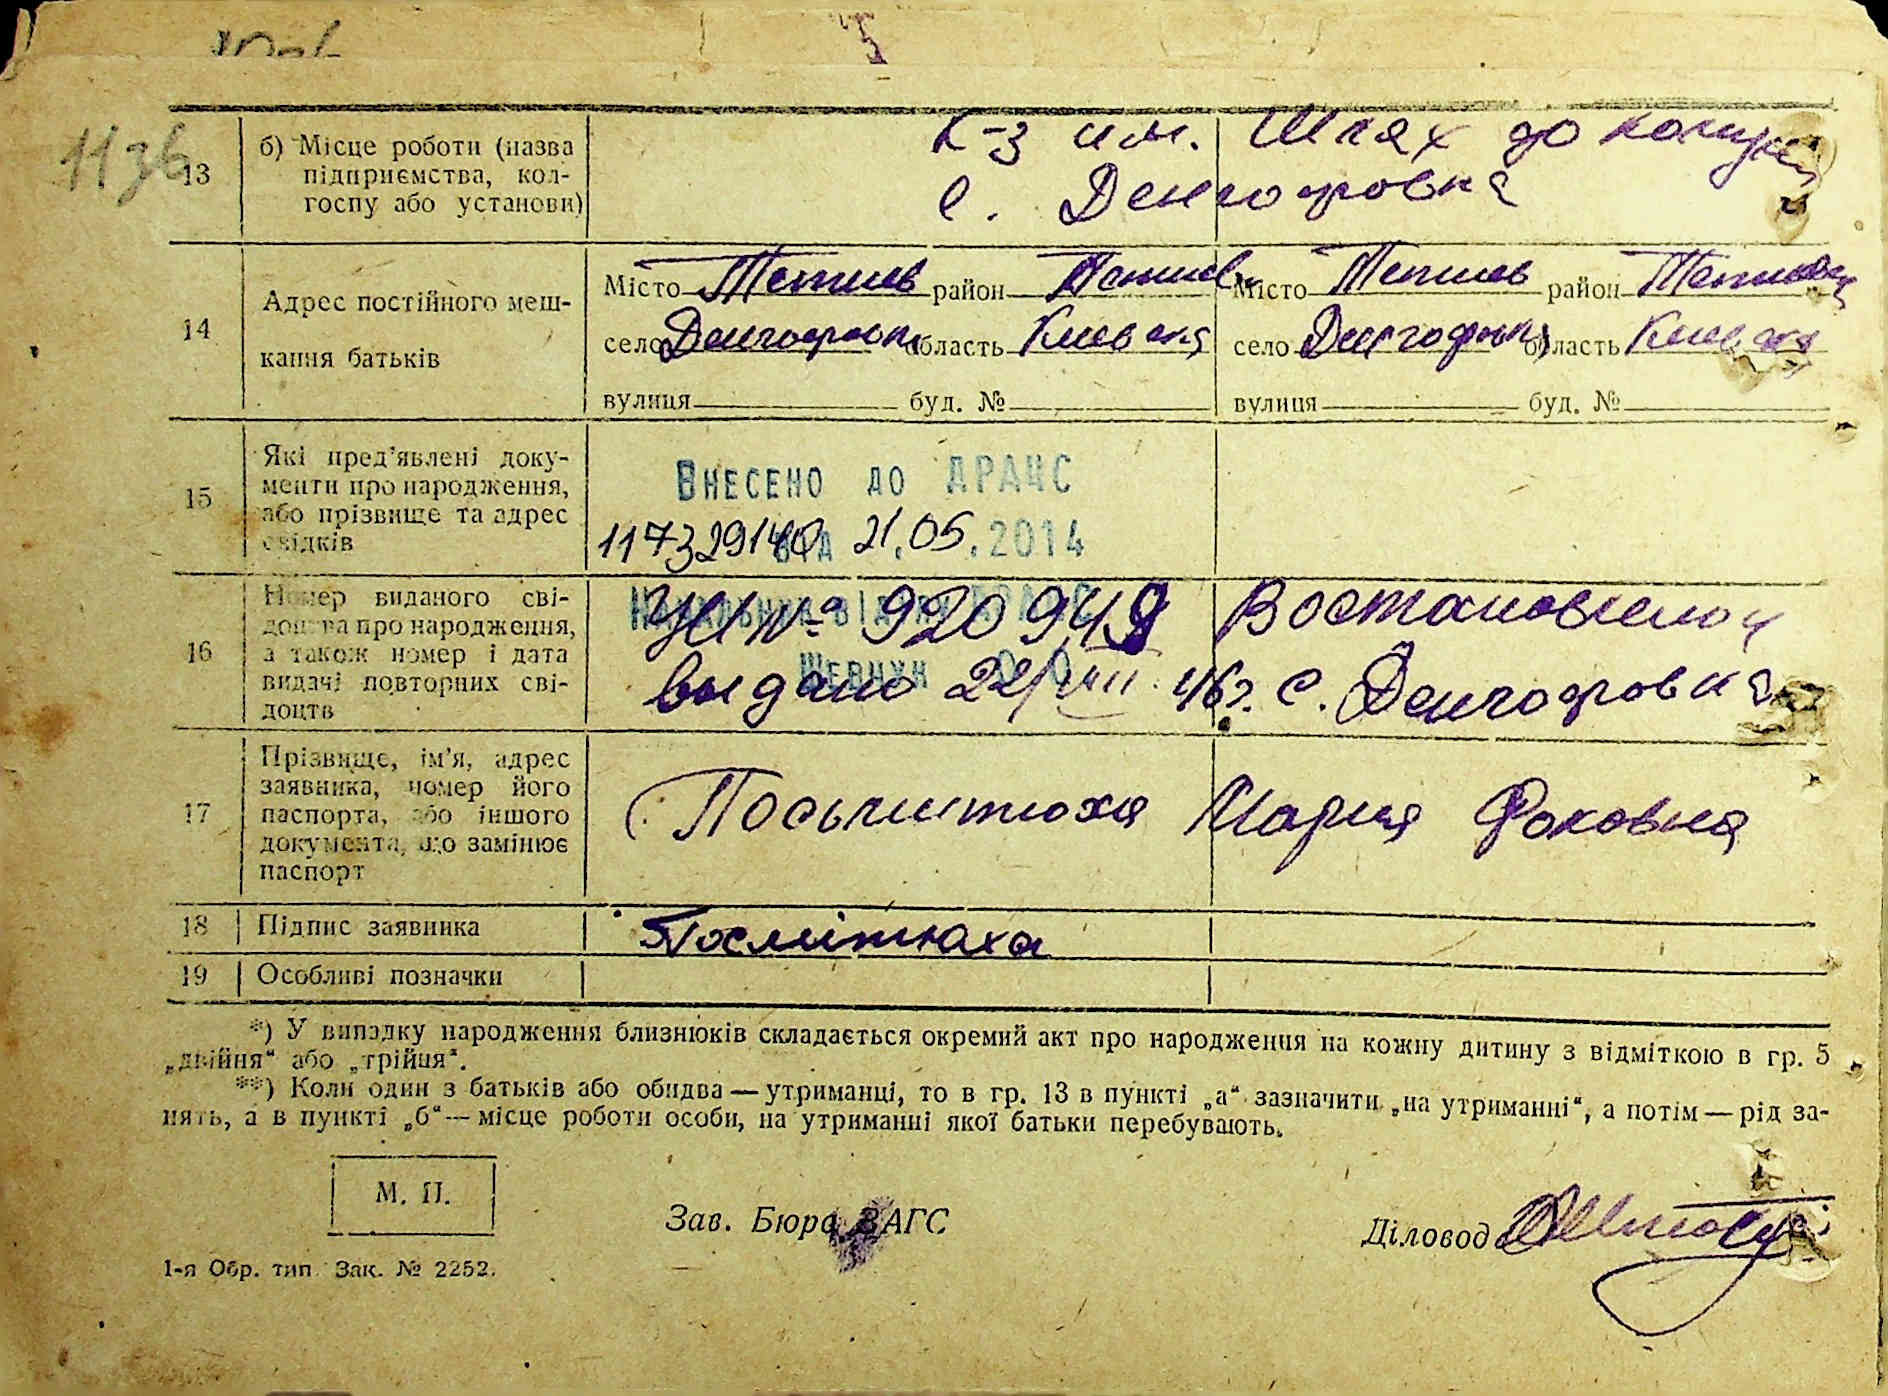 13
б) Місце роботи (назва
підприємства, кол-
госпу або установи)
К-з им. Шлях до комуни
с. Денгофовка
14
Адрес постійного меш-
кання батьків
Місто Тетиев район Тетиев Місто Тетиев район Тетиев
село Денгофовка область Киевская село Денгофовка область Киевская
вулиця буд. № вулиця буд. №
15
Які пред’явлені доку-
менти про народження,
або прізвище та адрес
свідків
Внесено до ДРАЦС
1173291 від 21.05.2014
16
Номер виданого сві-
доцтва про народження,
а також номер і дата
видачі повторних сві-
доцтв
№ 920949 Востановленой
Шевчук О.О.
выдано 22/VIII 46г. с. Денгофовка
17
Прізвище, ім’я, адрес
заявника, номер його
паспорта, або іншого
документа, що замінює
паспорт
Посьмитюха Мария Фоковна
18
Підпис заявника
Посмітюха
19
Особливі позначки
*) У випадку народження близнюків складається окремий акт про народження на кожну дитину з відміткою в гр. 5
„двійня“ або „трійня“.
**) Коли один з батьків або обидва — утриманці, то в гр. 13 в пункті „а“ зазначити „на утриманні“, а потім — рід за-
нять, а в пункті „б“ — місце роботи особи, на утриманні якої батьки перебувають.
М. П.
Зав. Бюра ЗАГС
Діловод
1-я Обр. тип. Зак. № 2252.